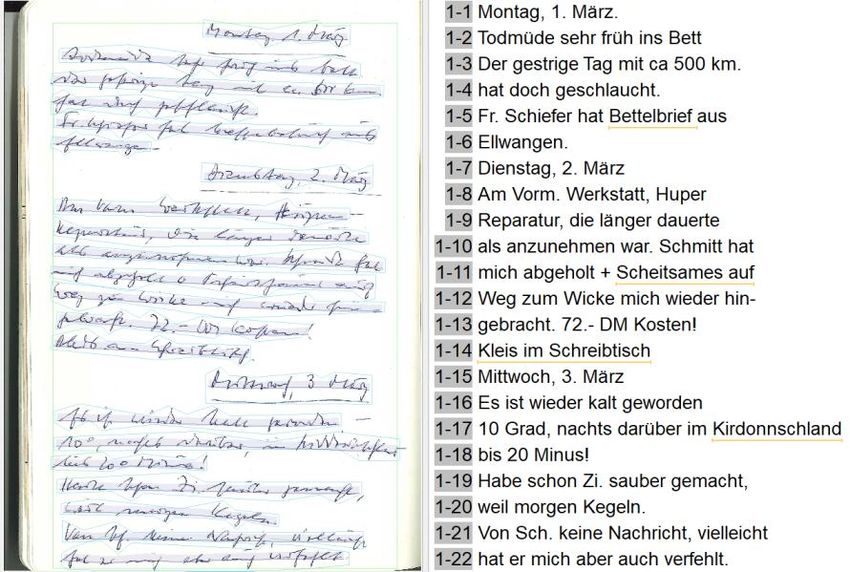 Montag 1. März
Todmüde sehr früh ins Bett
Der gestrige Tag mit ca. 500 km
hat doch geschlaucht.
Fr. hat aus
Ellwangen.
Dienstag, 2. März
Am Vorm. Werkstatt, Hupen-
Reparatur, die länger dauerte
als anzunehmen war. Schmitt hat
mich abgeholt u auf
Weg mich wieder hin-
gebracht. 72.- DM Kosten!
am Schreibtisch.
Mittwoch, 3 März
Es ist wieder kalt geworden —
10°, nachts darüber, in
bis 20 Minus!
Heute schon Zi. sauber gemacht,
weil morgen Kegeln.
Von Sch. keine Nachricht, vielleicht
hat er mich aber auch verfehlt
1-1 Montag, 1. März.
1-2 Todmüde sehr früh ins Bett
1-3 Der gestrige Tag mit ca 500 km.
1-4 hat doch geschlaucht.
1-5 Fr. Schiefer hat Bettelbrief aus
1-6 Ellwangen.
1-7 Dienstag, 2. März
1-8 Am Vorm. Werkstatt, Huper
1-9 Reparatur, die länger dauerte
1-10 als anzunehmen war. Schmitt hat
1-11 mich abgeholt + Scheitsames auf
1-12 Weg zum Wicke mich wieder hin-
1-13 gebracht. 72.- DM Kosten!
1-14 Kleis im Schreibtisch
1-15 Mittwoch, 3. März
1-16 Es ist wieder kalt geworden
1-17 10 Grad, nachts darüber im Kirdonnschland
1-18 bis 20 Minus!
1-19 Habe schon Zi. sauber gemacht,
1-20 weil morgen Kegeln.
1-21 Von Sch. keine Nachricht, vielleicht
1-22 hat er mich aber auch verfehlt.